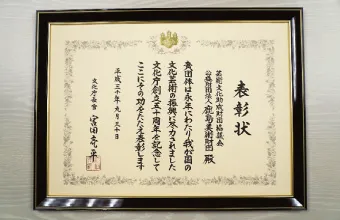 表彰状
芸術文化助成財団協議会
公益財団法人鹿島美術財団 殿
貴団体は永年にわたり我が国の
文化芸術の振興に尽力されました
文化庁創立五十周年を記念して
ここにその功をたたえ表彰します
平成三十年九月三十日
文化庁長官 宮田亮平